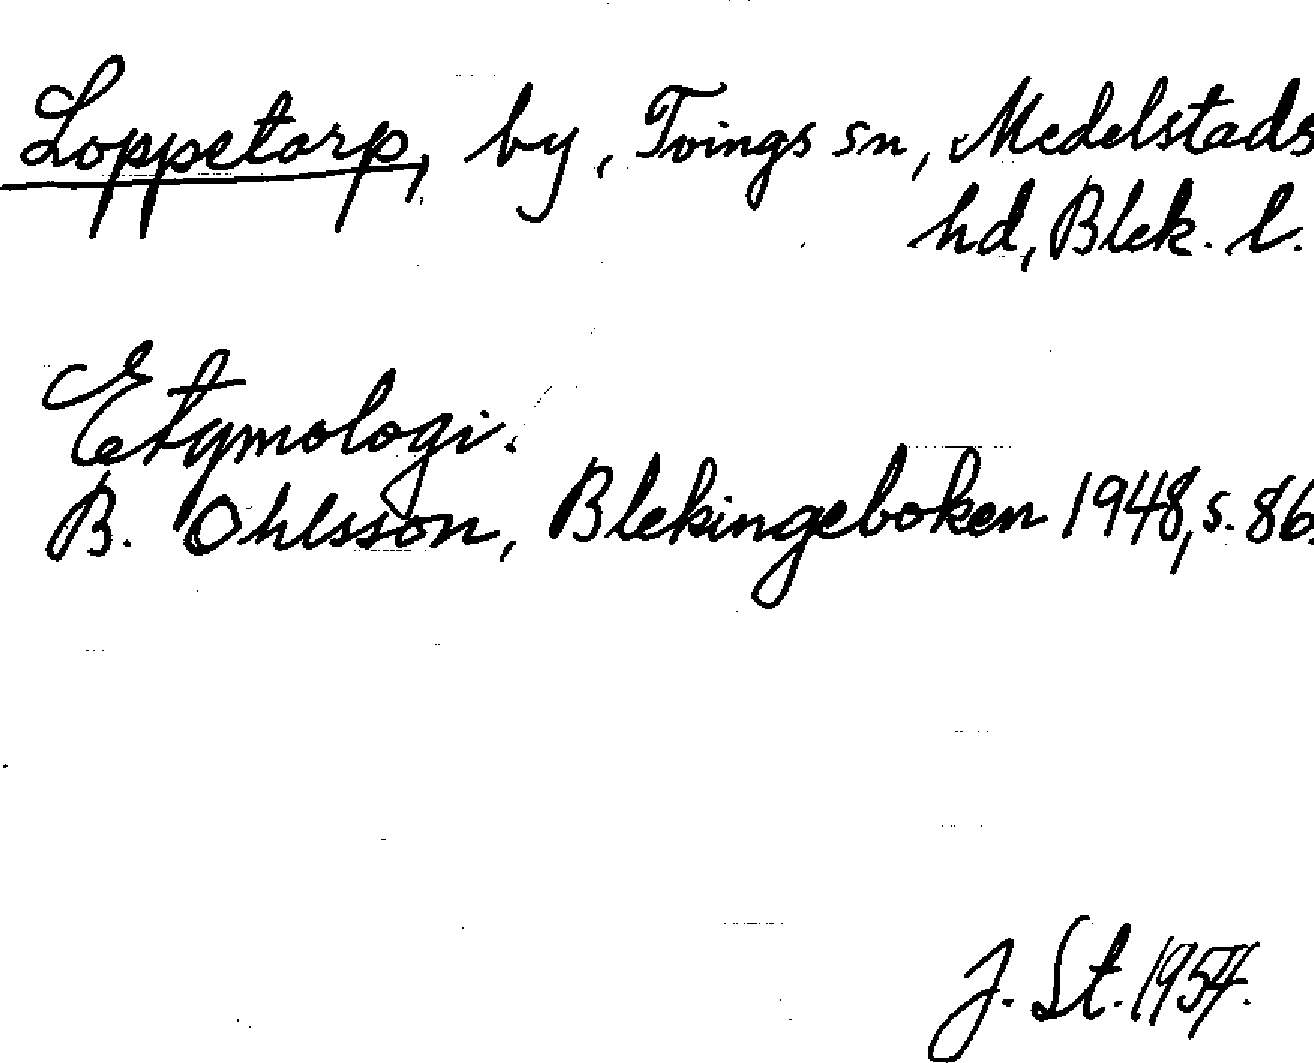 Loppetorp, by, Tvings sn, Medelstads
hd, Blek. l.
Etymologi.
B. Ohlsson, Blekingeboken 1948, s. 86.
J. St. 1957.